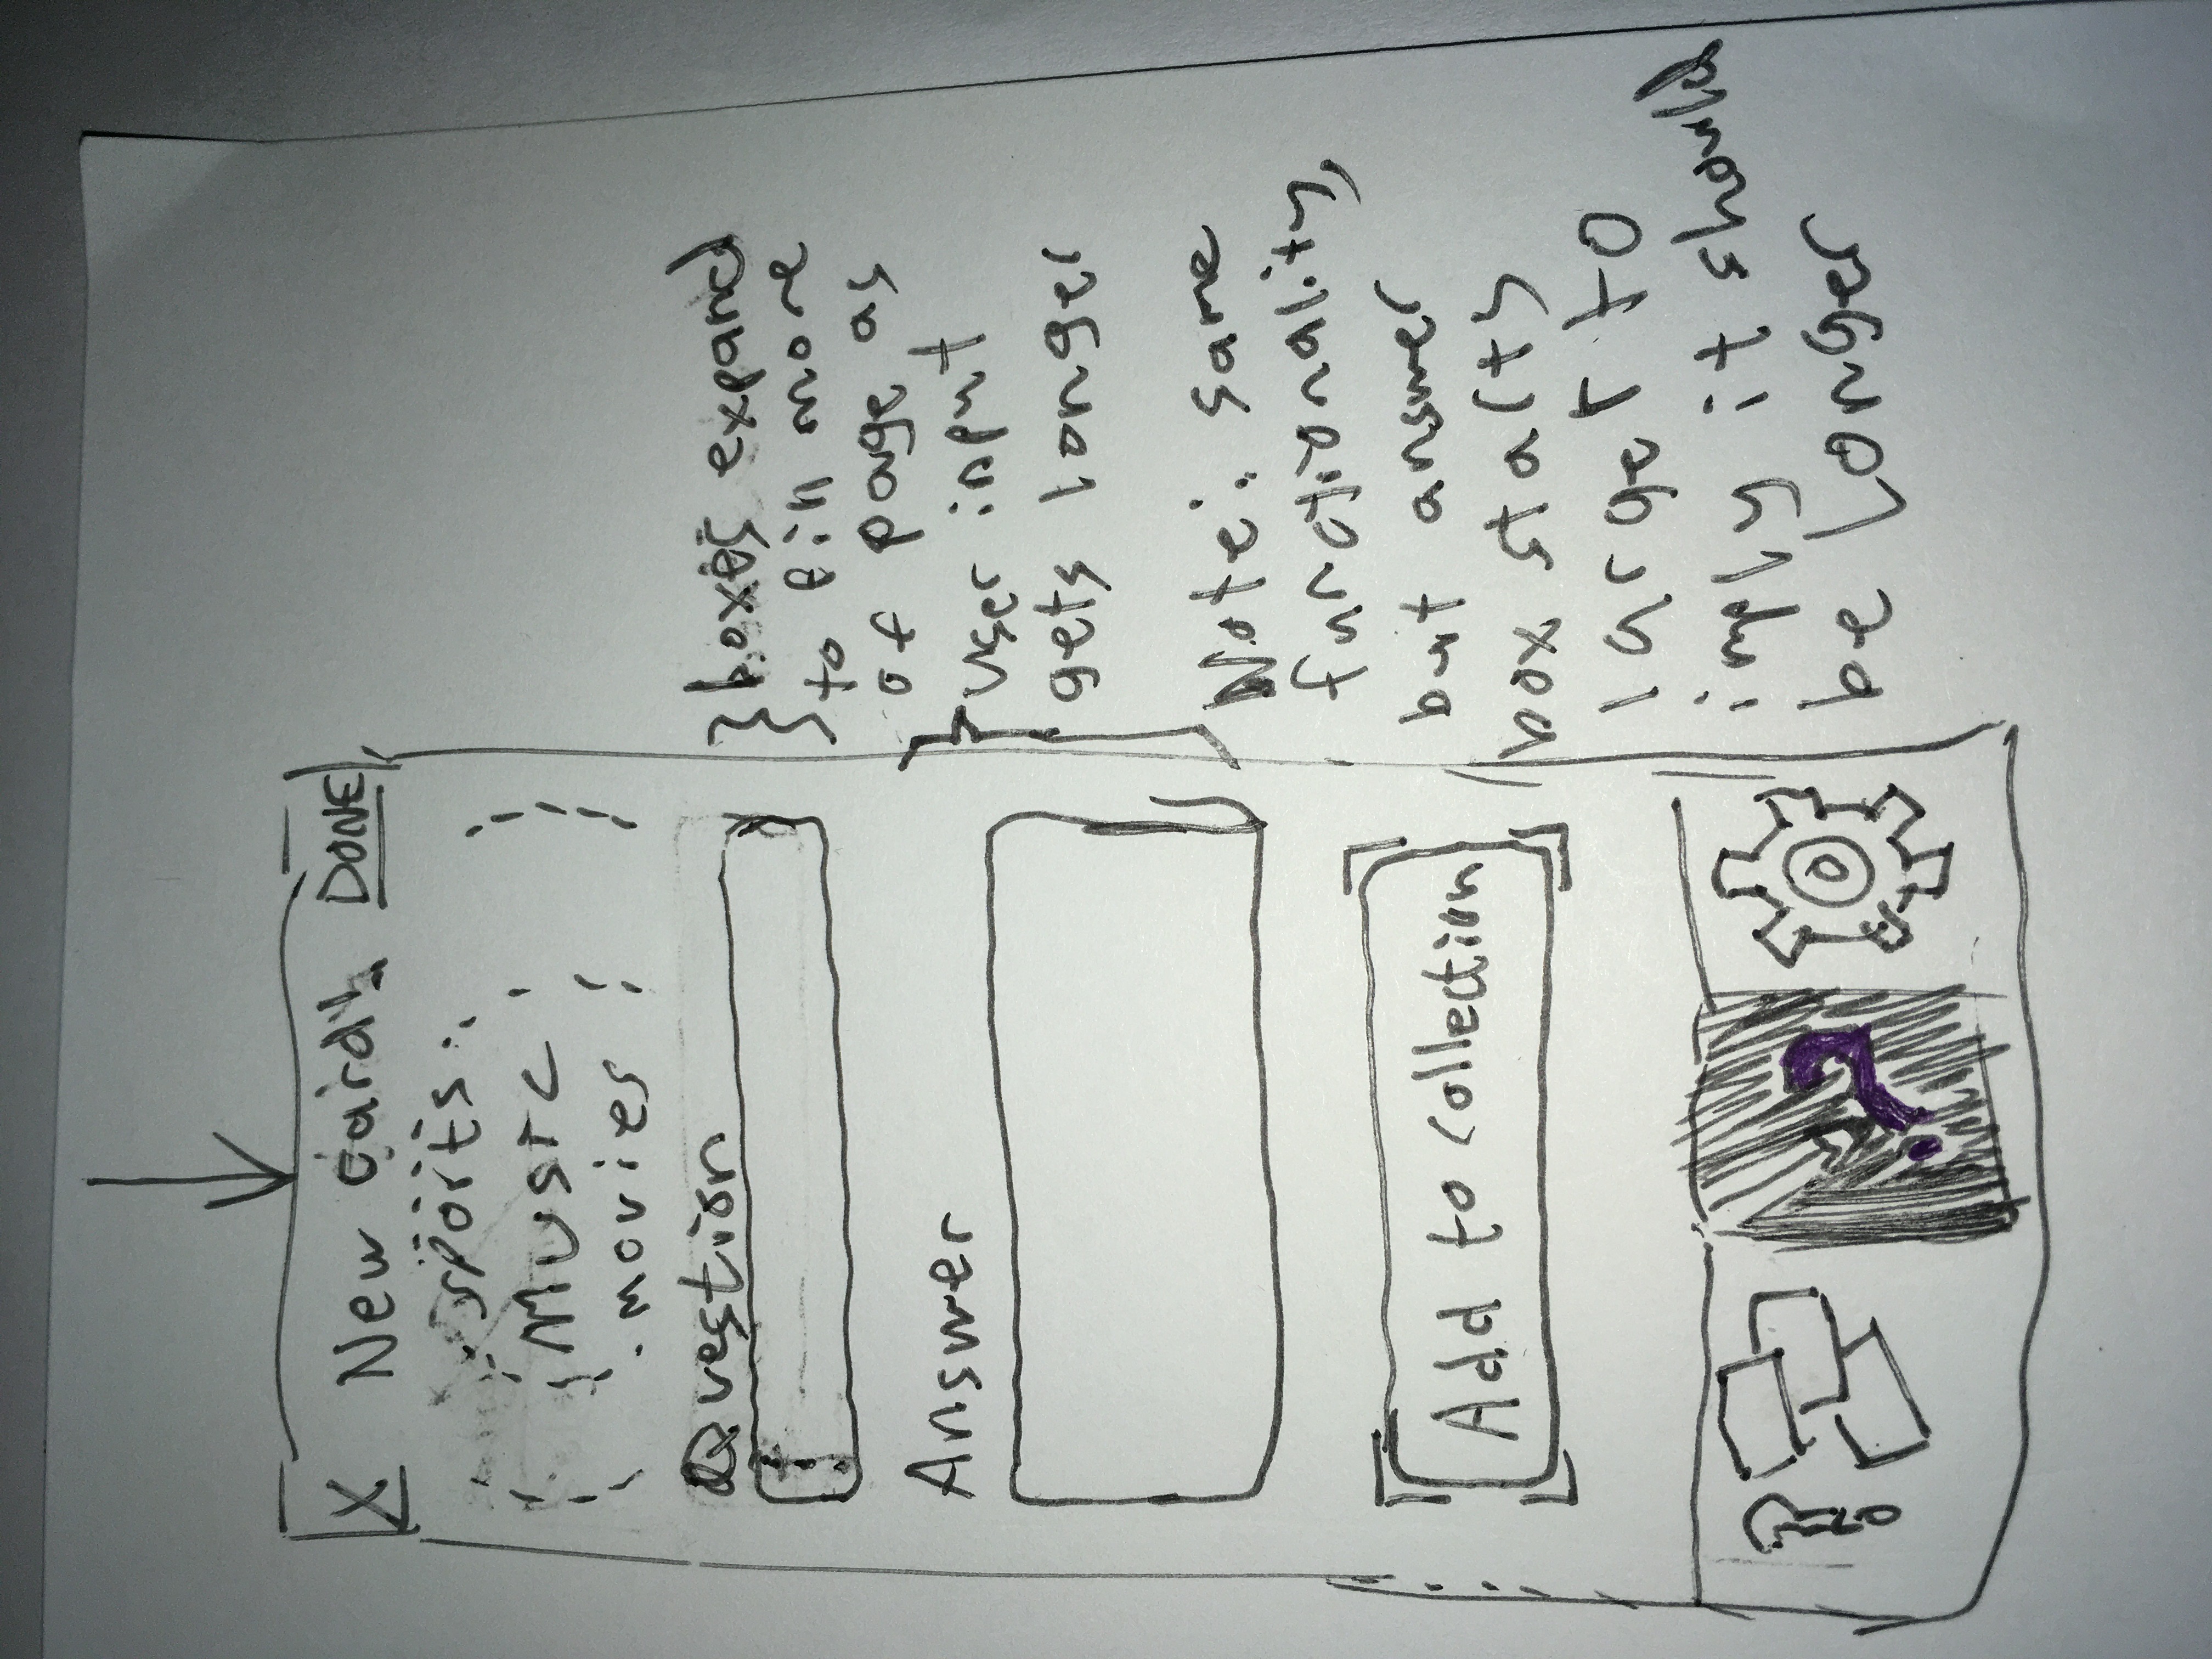 X New Card! DONE
sports
Music
movies
Question
Answer
Add to collection
boxes expand
to fill more
of page as
user input
gets longer
Note: same
functionality,
but answer
box starts
larger to
imply it should
be longer